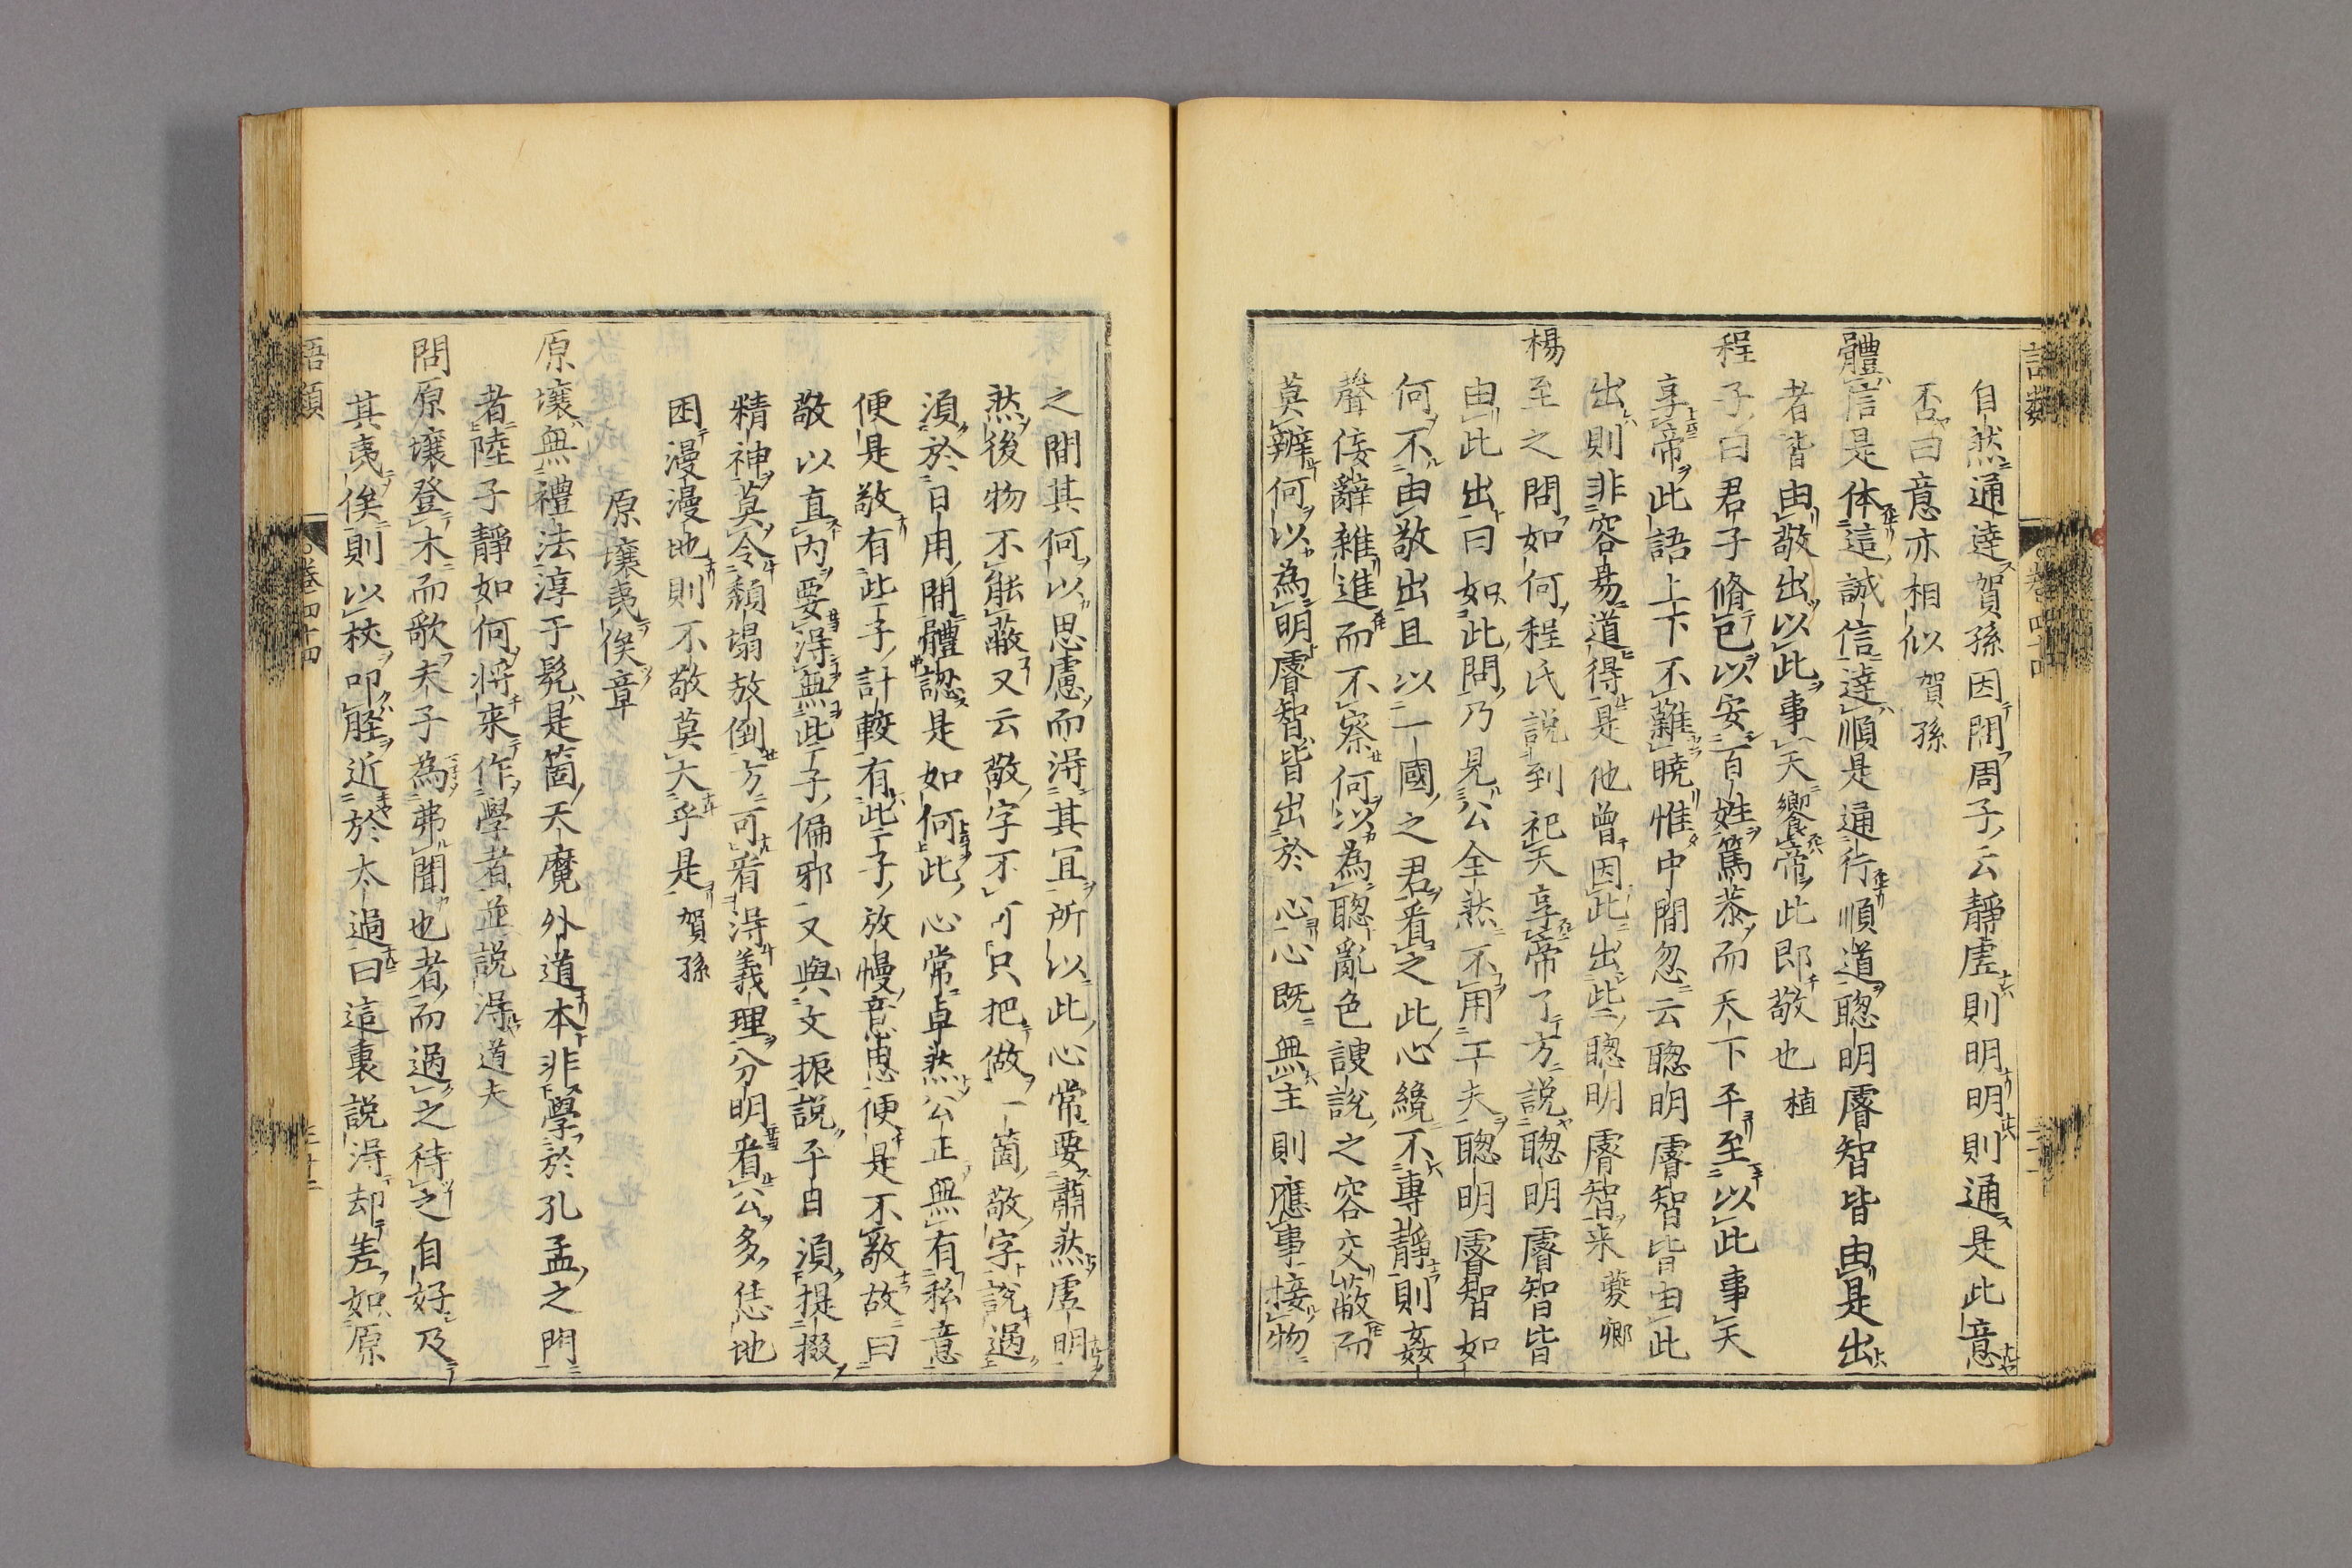 自然通達賀孫因問周子云靜虛則明明則通是此意
否曰意亦相似賀孫
體信是体這誠信達順是通行順道聰明睿智皆由是出
者皆由敬出以此事天饗帝此即敬也植
程子曰君子脩已以安百姓篤恭而天下平至以此事天
享帝此語上下不難曉惟中間忽云聰明睿智皆由此
出則非容易道得是他曾因此出些聰明睿智來夔卿
楊至之問如何程氏說到祀天享帝了方說聰明睿智皆
由此出曰如此問乃見公全然不用工夫聰明睿智如
何不由敬出且以一國之君看之此心纔不專靜則姦
聲佞辭雜進而不察何以為聰亂色諛說之容交蔽而
莫辨何以為明睿智皆出於心心既無主則應事接物
之間其何以思慮而得其宜所以此心常要肅然虛明
然後物不能蔽又云敬字不可只把做一箇敬字說過
須於日用間體認是如何此心常卓然公正無有私意
便是敬有些子計較有些子放慢意思便是不敬故曰
敬以直內要得無些子偏邪又與文振說平日須提掇
精神莫令頹塌放倒方可看得義理分明看公多恁地
困漫漫地則不敬莫大乎是賀孫
原壤夷俟章
原壤無禮法淳于髡是箇天魔外道本非學於孔孟之門
者陸子靜如何將來作學者並說得道夫
問原壤登木而歌夫子為弗聞也者而過之待之自好及
其夷俟則以杖叩脛近於太過曰這裏說得却差如原
語類
卷四十四